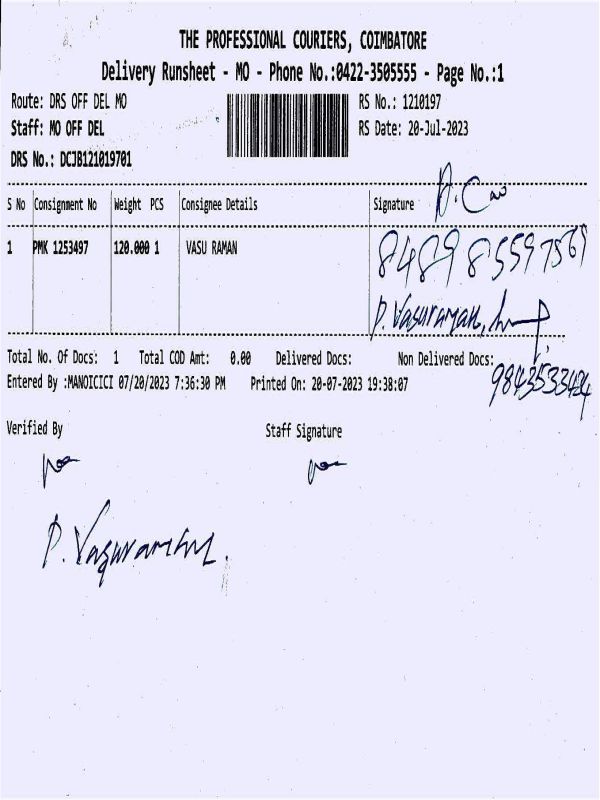 THE PROFESSIONAL COURIERS, COIMBATORE
Delivery Runsheet - MO - Phone No.:0422-3505555 - Page No.:1
Route: DRS OFF DEL MO RS No.: 1210197
Staff: MO OFF DEL RS Date: 20-Jul-2023
DRS No.: DCJB121019701
S No Consignment No Weight PCS Consignee Details Signature
1 PMK 1253497 120.000 1 VASU RAMAN
P. Vasuraman,
Total No. Of Docs: 1 Total COD Amt: 0.00 Delivered Docs: Non Delivered Docs:
9843533424
Entered By :MANOICICI 07/20/2023 7:36:30 PM Printed On: 20-07-2023 19:38:07
Verified By Staff Signature
P. Vasuraman.